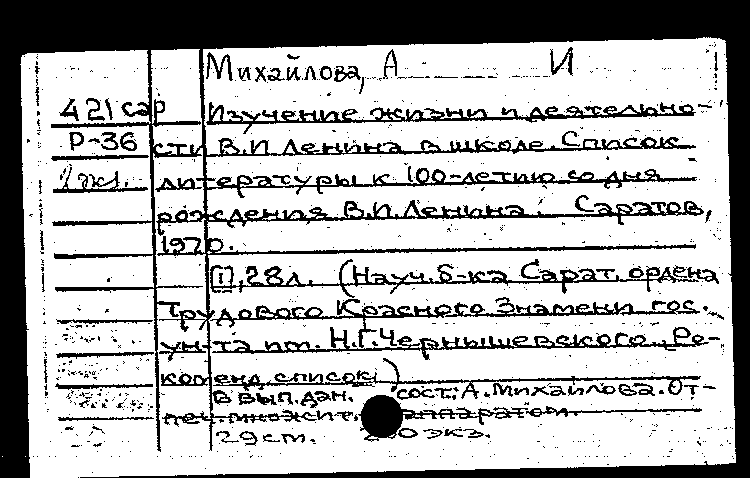 Михайлова, А И
421 сар Изучение жизни и деятельно-
Р-36 сти В.И Ленина в школе. Список
литературы к 100-летию со дня
рождения В.И.Ленина. Саратов,
1970.
[I], 28л. (Науч. б-ка Сарат. ордена
Трудового Красного Знамени гос.
ун-та им. Н.Г.Чернышевского. Ре-
коменд. список)
в вып. дан. сост.: А. Михайлова. От-
печ. множит. аппаратом.
29см. экз.